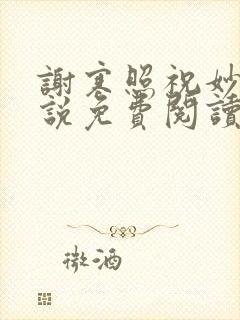 謝寒照祝妙
說免費閱讀
微酒